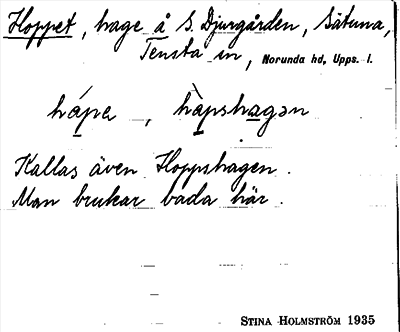 Hoppet, hage å S. Djurgården, Sätuna,
Tensta sn, Norunda hd, Upps. l.
hápe, hàpshagən
Kallas även Hoppshagen.
Man brukar bada här.
STINA HOLMSTRÖM 1935